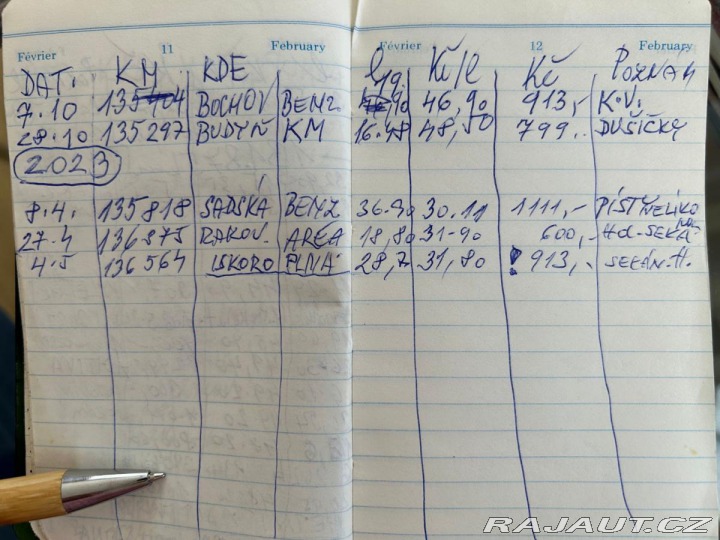 Février 11 February Février 12 February
DAT. KM KDE Kč/l Kč POZNÁM
7.10 135 BOCHOV BENZ 46,90 913,- K.V.
28.10 135297 BUDYŇ KM 16.48 48,50 799.- DUŠIČKY
2023
8.4. 135818 SADSKÁ BENZ 36.90 30.11 1111,-
27.4 RAKOV. 18,80 31-90 600,-
4.5 136564 PLNÁ 31,80 ! 913,-
RAJAUT.CZ